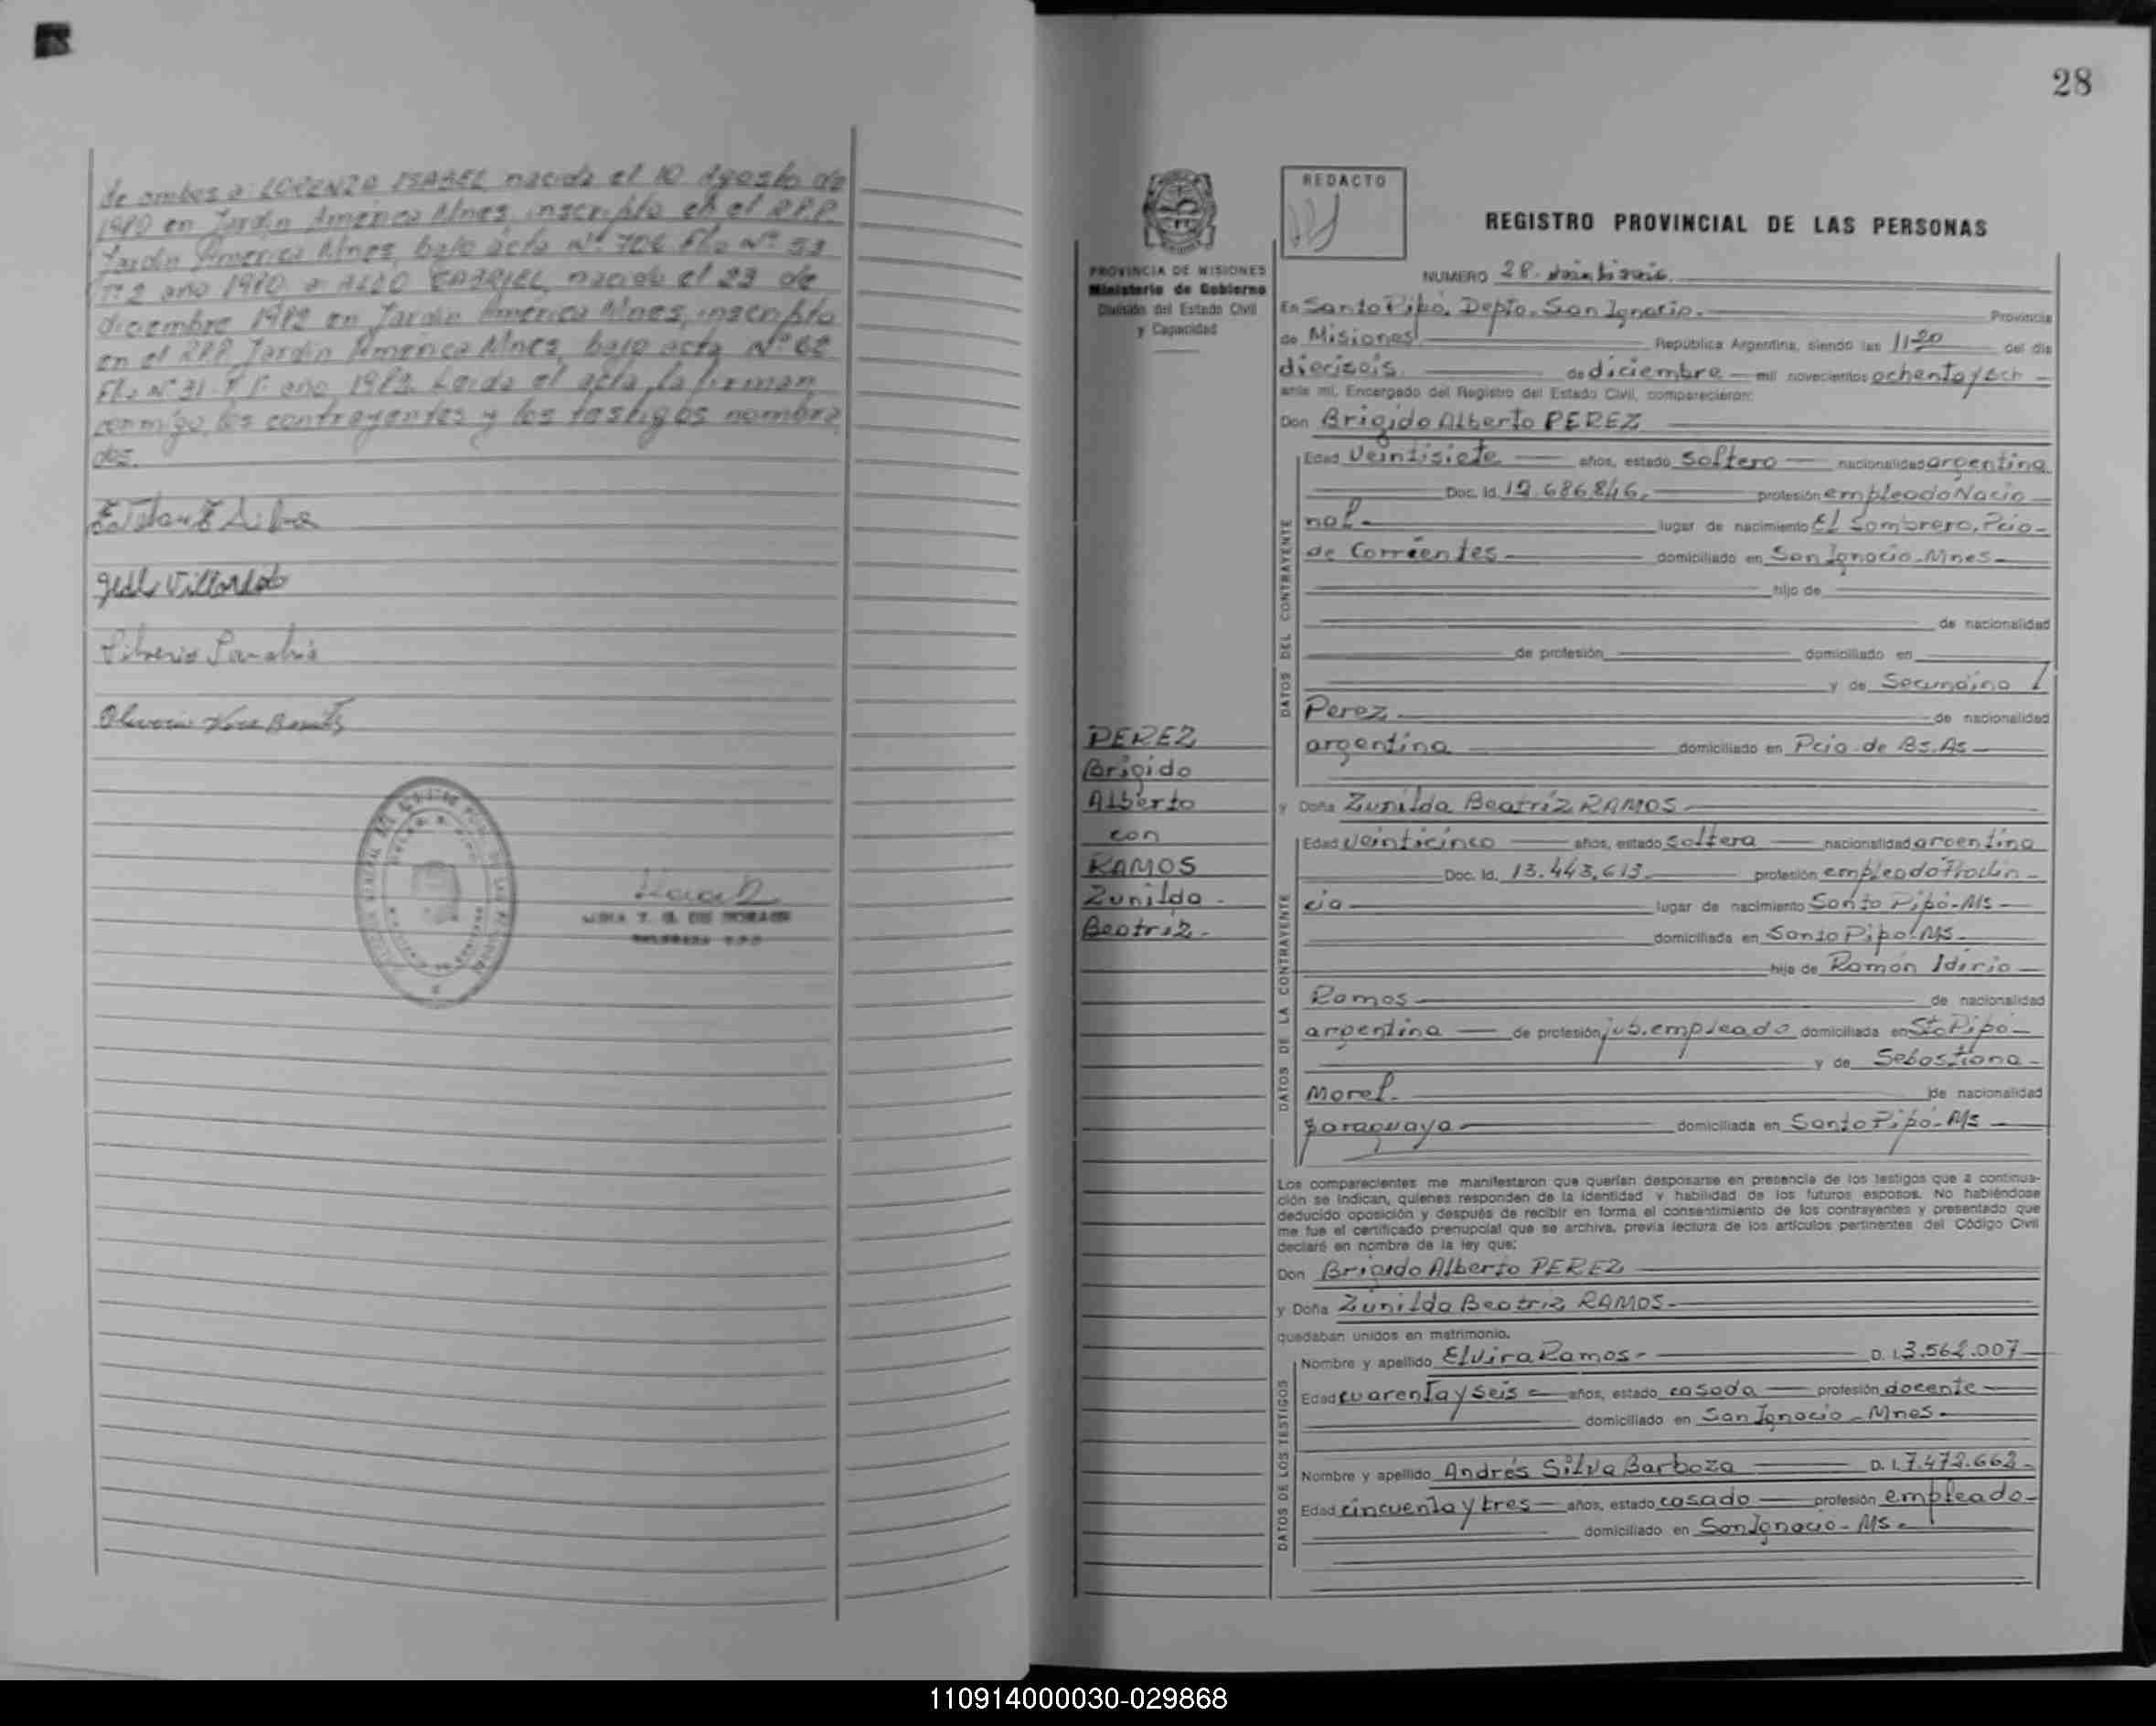 de ambos a: LORENZA ISABEL nacida el 10 Agosto de
1980 en Jardín América Mnes, inscripta en el RPP
Jardín América Mnes, bajo acta Nº 706 Flo Nº 53
Tº 2 año 1980 a ALDO GABRIEL, nacido el 23 de
diciembre 1982 en Jardín América Mnes, inscripto
en el RPP Jardín América Mnes, bajo acta Nº 62
Flo Nº 31 - Tº 1º año 1983. Leída el acta, la firman
conmigo, los contrayentes y los testigos nombra
dos.
28
REDACTO
REGISTRO PROVINCIAL DE LAS PERSONAS
PROVINCIA DE MISIONES
Ministerio de Gobierno
División del Estado Civil
y Capacidad
NUMERO 28.
En Santo Pipó, Depto. San Ignacio. Provincia
de Misiones República Argentina, siendo las 11-20 del día
dieciseis de diciembre mil novecientos ochenta y och
ante mí, Encargado del Registro del Estado Civil, comparecieron:
Don Brigido Alberto PEREZ
Edad Veintisiete años, estado soltero nacionalidad argentina
Doc. Id. 12.686.846. profesión empleado Nacio
nal. lugar de nacimiento El Sombrero, Pcia-
de Corrientes domiciliado en San Ignacio-Mnes-
hijo de
de nacionalidad
de profesión domiciliado en
y de Secundina
Perez de nacionalidad
argentina domiciliado en Pcia de Bs.As-
DATOS DEL CONTRAYENTE
PEREZ
Brigido
Alberto
con
RAMOS
Zunilda -
Beatriz -
y Doña Zunilda Beatríz RAMOS
Edad veinticinco años, estado soltera nacionalidad argentina
Doc. Id. 13.443.613 profesión empleada Provin-
cia lugar de nacimiento Santo Pipó-Ms-
domiciliada en Santo Pipó-Ms-
hija de Ramón Idirio
Ramos de nacionalidad
argentina de profesión jub.empleado domiciliada en Sto Pipó
y de Sebastiana-
Morel. de nacionalidad
paraguaya domiciliada en Santo Pipó-Ms
DATOS DE LA CONTRAYENTE
Los comparecientes me manifestaron que querían desposarse en presencia de los testigos que a continua-
ción se indican, quienes responden de la identidad y habilidad de los futuros esposos. No habiéndose
deducido oposición y después de recibir en forma el consentimiento de los contrayentes y presentado que
me fue el certificado prenupcial que se archiva, previa lectura de los artículos pertinentes del Código Civil
declaré en nombre de la ley que:
Don Brigido Alberto PEREZ
y Doña Zunilda Beatriz RAMOS-
quedaban unidos en matrimonio.
Nombre y apellido Elvira Ramos- D. I. 3.562.007
Edad cuarenta y seis años, estado casada profesión docente
domiciliado en San Ignacio-Mnes-
Nombre y apellido Andrés Silva Barboza D. I. 7.472.662-
Edad cincuenta y tres años, estado casado profesión empleado-
domiciliado en San Ignacio-Ms-
DATOS DE LOS TESTIGOS
110914000030-029868